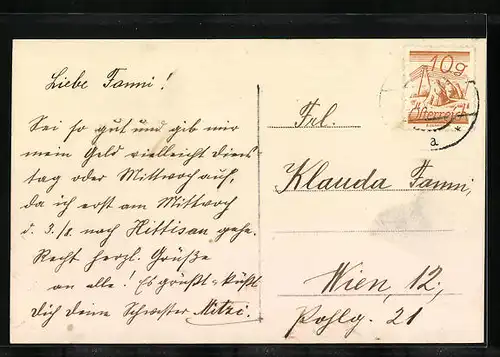 Liebe Fanni!
Sei so gut und gib mir
mein Geld vielleicht diens-
tag oder Mittwoch auf,
da ich erst am Mittwoch
d. 3./8. nach Hittisau gehe.
Recht herzl. Grüße
an alle! Es grüßt u. küßt
Dich deine Schwester Mitzi.
10g
Österreich
a
Frl.
Klauda Fanni,
Wien, 12.,
Pohlg. 21